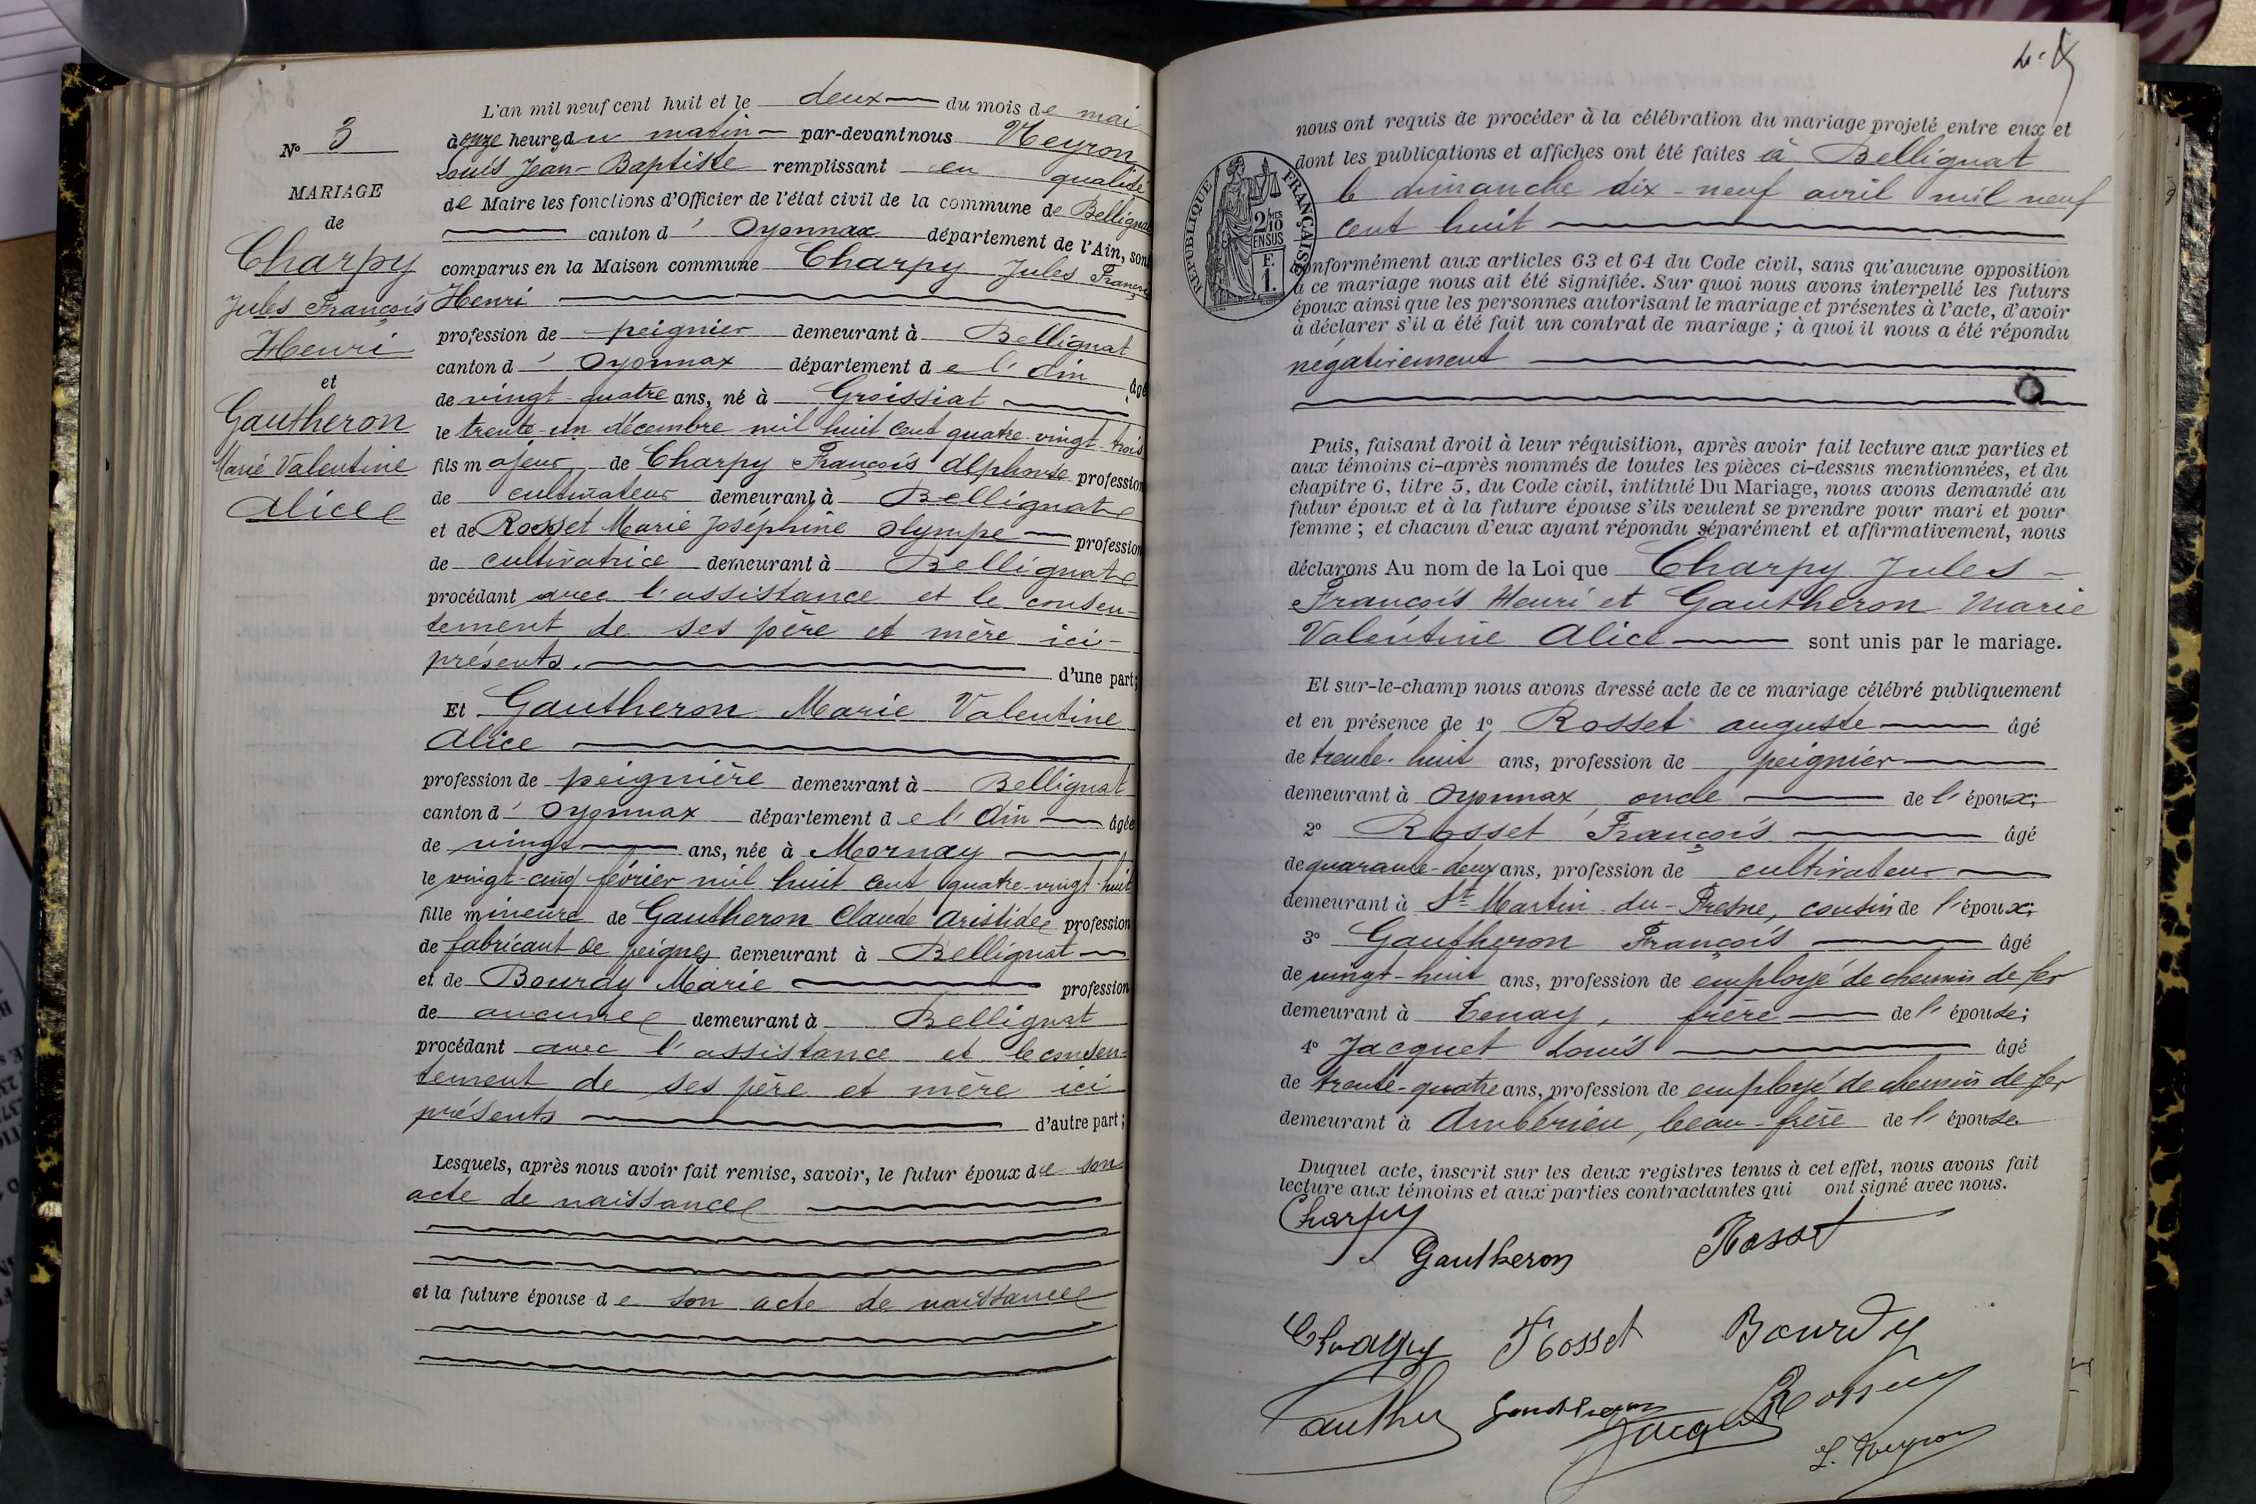 L'an mil neuf cent huit et le deux du mois de mai
à onze heures du matin par-devant nous Neyron
Louis Jean-Baptiste remplissant en qualité
de Maire les fonctions d'Officier de l'état civil de la commune de Bellignat
canton d'Oyonnax département de l'Ain, sont
comparus en la Maison commune Charpy Jules François
Henri
profession de peignier demeurant à Bellignat
canton d'Oyonnax département de l'Ain âgé
de vingt-quatre ans, né à Groissiat
le trente-un décembre mil huit cent quatre-vingt-trois
fils majeur de Charpy François Alphonse profession
de cultivateur demeurant à Bellignat
et de Rosset Marie Joséphine Olympe profession
de cultivatrice demeurant à Bellignat
procédant avec l'assistance et le consen-
tement de ses père et mère ici-
présents. d'une part;
Et Gautheron Marie Valentine
Alice
profession de peignière demeurant à Bellignat
canton d'Oyonnax département de l'Ain âgée
de vingt ans, née à Mornay
le vingt-cinq février mil huit cent quatre-vingt-huit
fille mineure de Gautheron Claude Aristide profession
de fabricant de peignes demeurant à Bellignat
et de Bourdy Marie profession
de aucune demeurant à Bellignat
procédant avec l'assistance et le consen-
tement de ses père et mère ici
présents d'autre part;
Lesquels, après nous avoir fait remise, savoir, le futur époux de son
acte de naissance
et la future épouse de son acte de naissance
No 3
MARIAGE
de
Charpy
Jules François
Henri
et
Gautheron
Marie Valentine
Alice
nous ont requis de procéder à la célébration du mariage projeté entre eux et
dont les publications et affiches ont été faites à Bellignat
le dimanche dix-neuf avril mil neuf
cent huit
conformément aux articles 63 et 64 du Code civil, sans qu'aucune opposition
à ce mariage nous ait été signifiée. Sur quoi nous avons interpellé les futurs
époux ainsi que les personnes autorisant le mariage et présentes à l'acte, d'avoir
à déclarer s'il a été fait un contrat de mariage ; à quoi il nous a été répondu
négativement
Puis, faisant droit à leur réquisition, après avoir fait lecture aux parties et
aux témoins ci-après nommés de toutes les pièces ci-dessus mentionnées, et du
chapitre 6, titre 5, du Code civil, intitulé Du Mariage, nous avons demandé au
futur époux et à la future épouse s'ils veulent se prendre pour mari et pour
femme ; et chacun d'eux ayant répondu séparément et affirmativement, nous
déclarons Au nom de la Loi que Charpy Jules
François Henri et Gautheron Marie
Valentine Alice sont unis par le mariage.
Et sur-le-champ nous avons dressé acte de ce mariage célébré publiquement
et en présence de 1º Rosset auguste âgé
de trente-huit ans, profession de peignier
demeurant à Oyonnax, oncle de l'époux;
2º Rosset François âgé
de quarante-deux ans, profession de cultivateur
demeurant à St Martin-du-Fresne, cousin de l'époux;
3º Gautheron François âgé
de vingt-huit ans, profession de employé de chemin de fer
demeurant à Tenay, frère de l'épouse;
4º Jacquet Louis âgé
de trente-quatre ans, profession de employé de chemin de fer
demeurant à Ambérieu, beau-frère de l'épouse
Duquel acte, inscrit sur les deux registres tenus à cet effet, nous avons fait
lecture aux témoins et aux parties contractantes qui ont signé avec nous.
Charpy
Gautheron Rosset
Charpy Rosset Bourdy
Gautheron Jacquet
L. Neyron
RÉPUBLIQUE FRANÇAISE
2/10
EN SUS
F.
1.